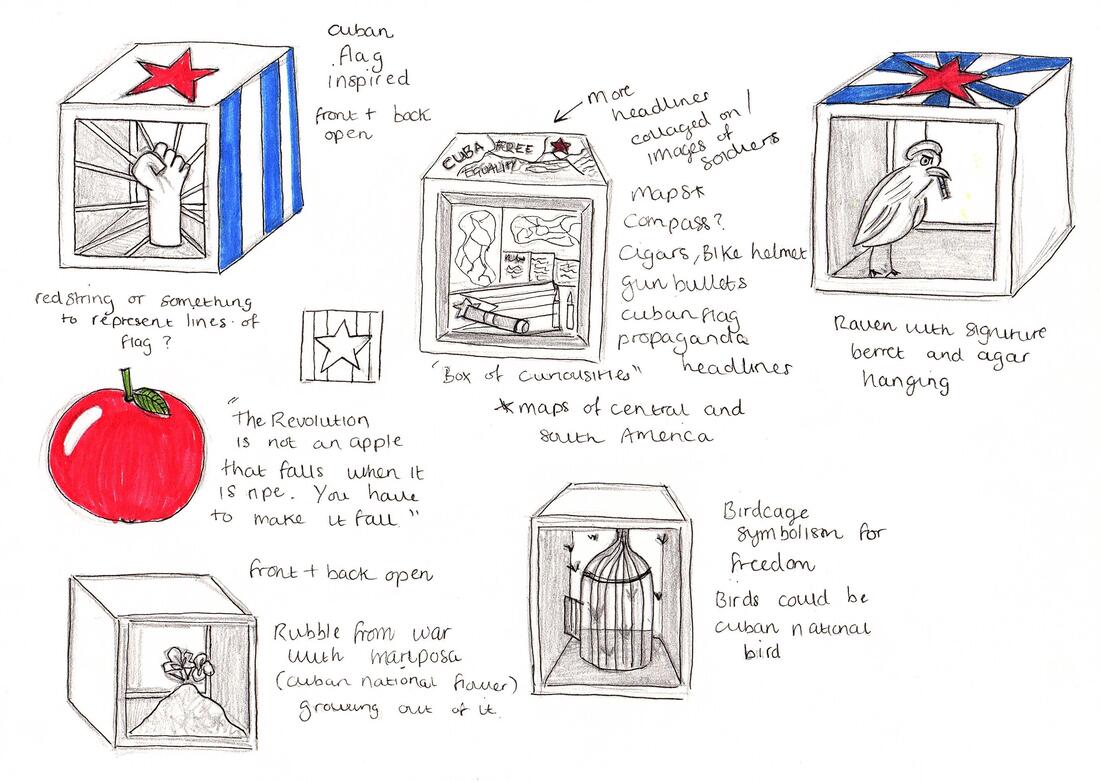 cuban
flag
inspired
front + back
open
red string or something
to represent lines of
flag ?
More
headlines
collaged on /
images of
soldiers
CUBA FREE
EQUALITY
Maps*
Compass?
Cigars, Bike helmet
gun bullets
cuban flag
propaganda
headlines
"Box of curiousities"
*maps of central and
south America
Raven with signiture
berret and cigar
hanging
"The Revolution
is not an apple
that falls when it
is ripe. You have
to make it fall"
front + back open
Rubble from war
with mariposa
(cuban national flower)
growing out of it.
Birdcage
symbolism for
freedom
Birds could be
cuban national
bird